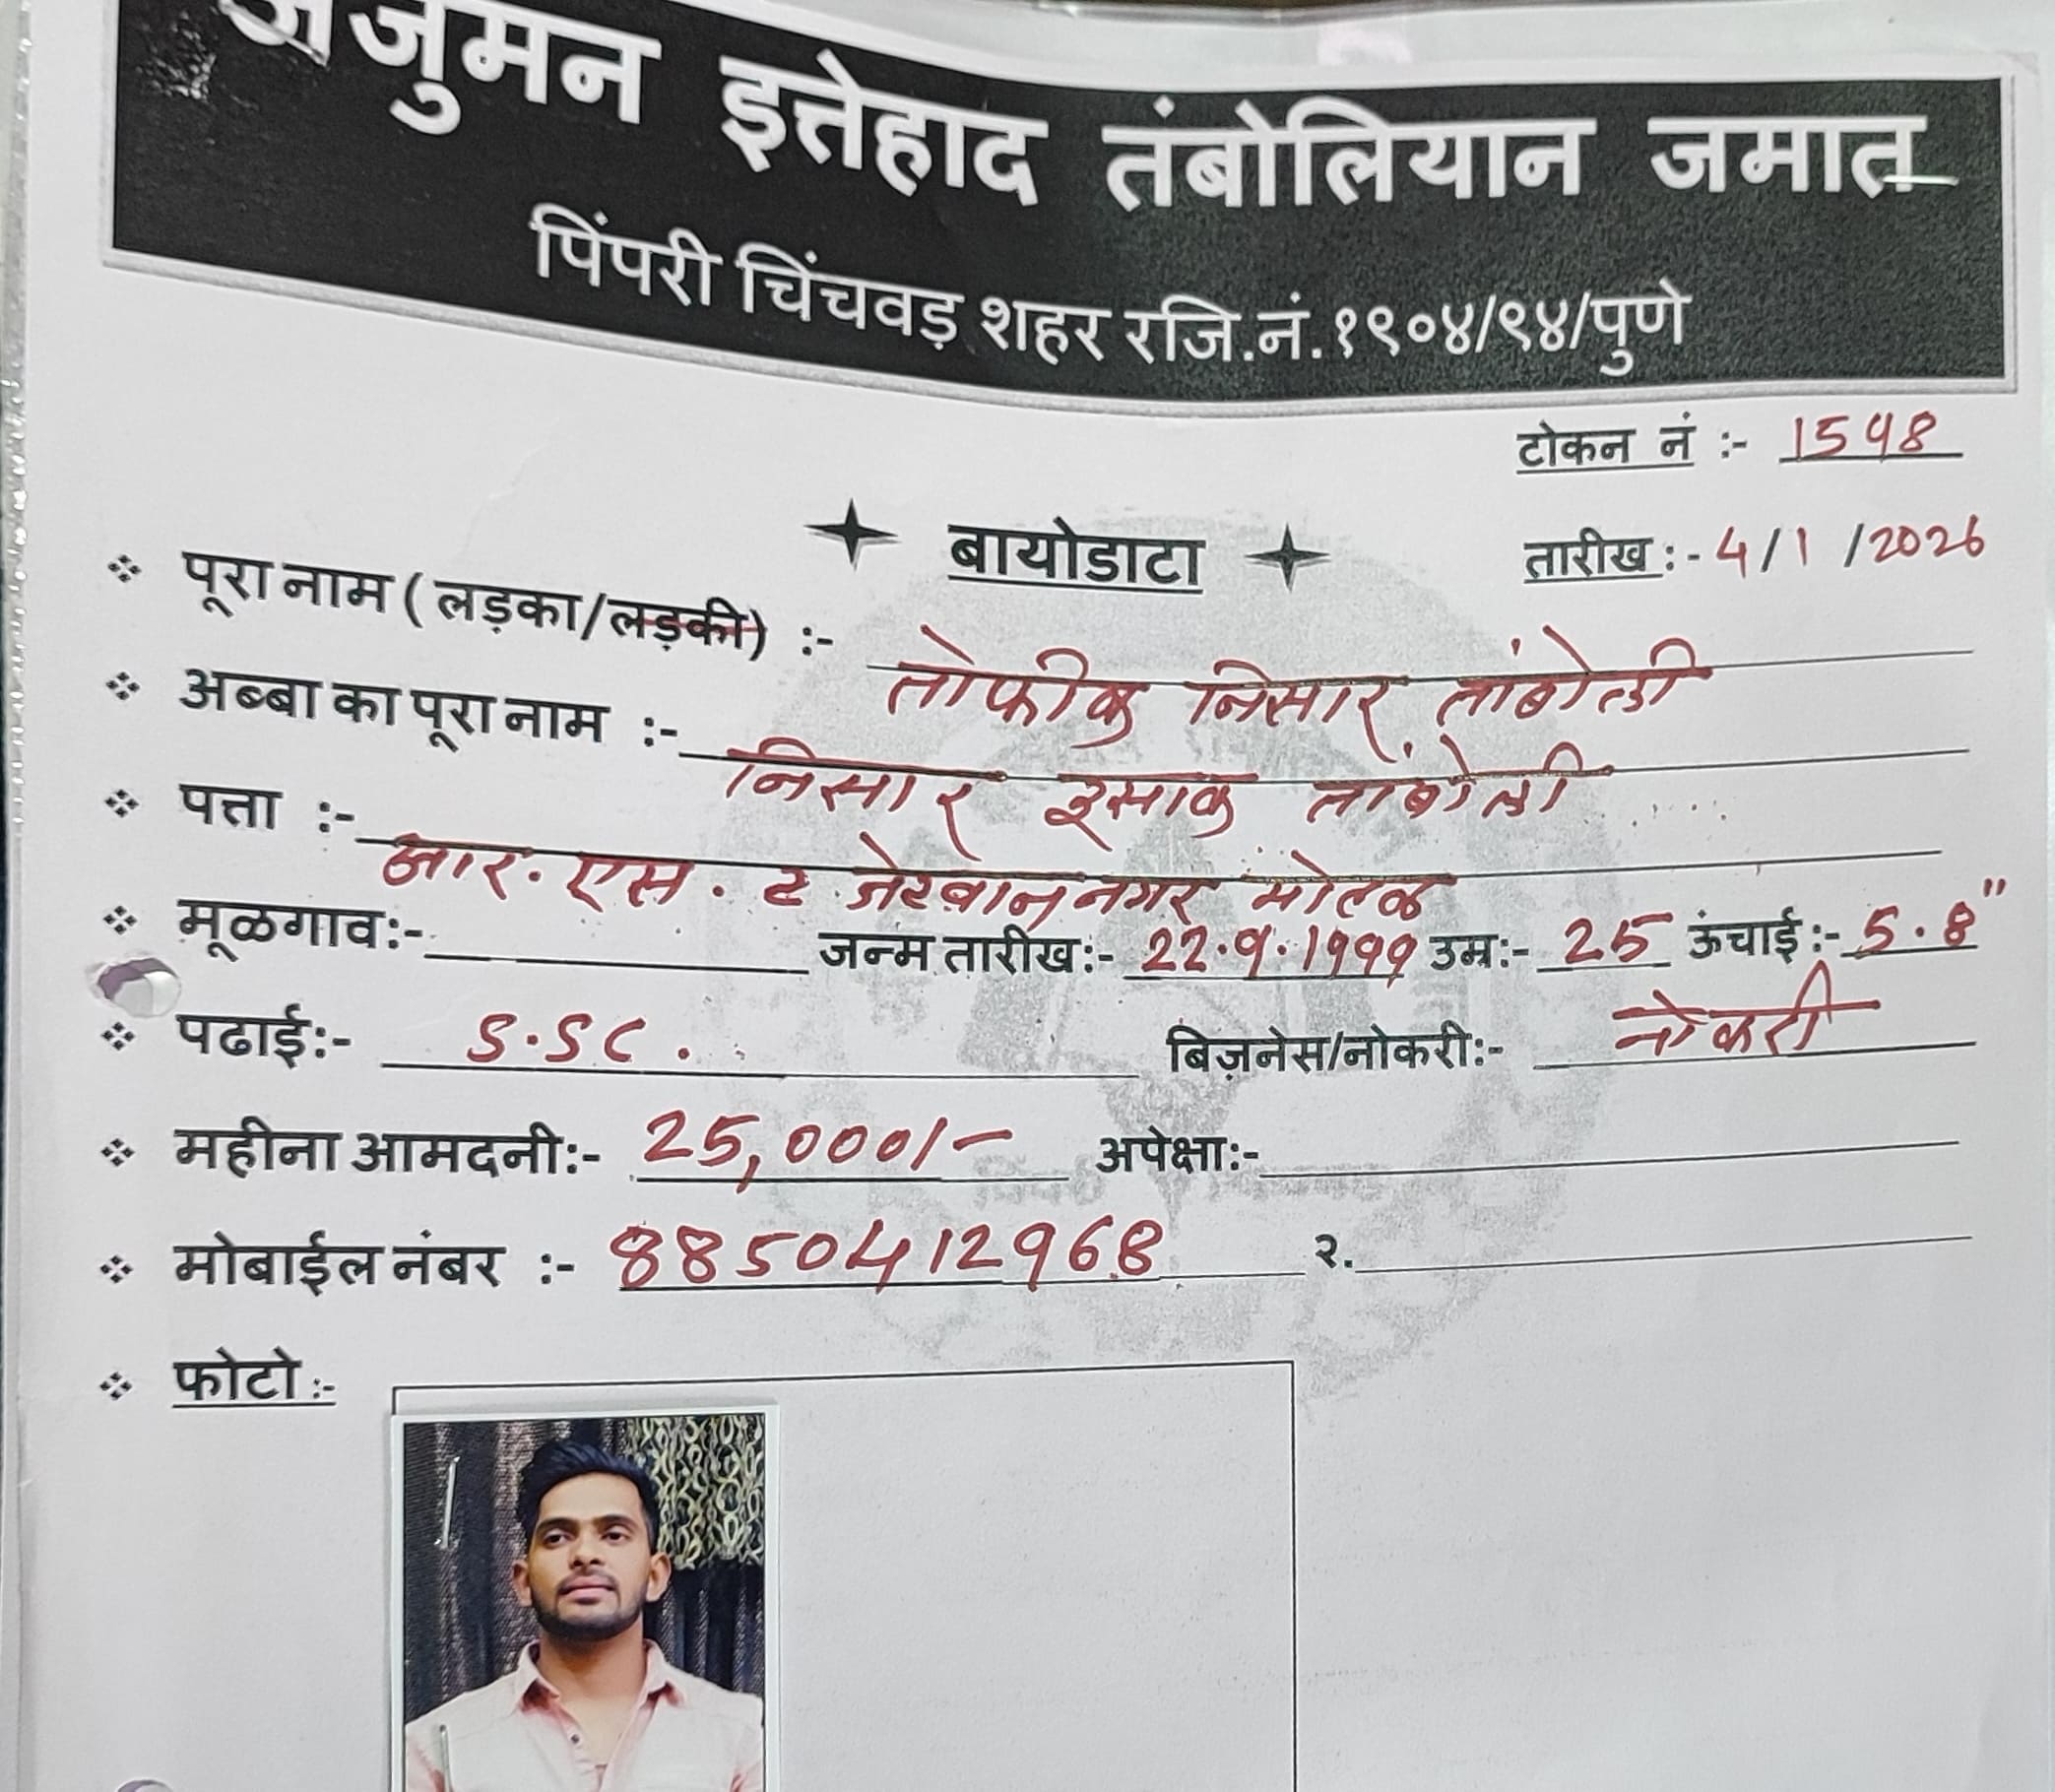 अंजुमन इत्तेहाद तंबोलियान जमात
पिंपरी चिंचवड़ शहर रजि.नं.१९०४/९४/पुणे
टोकन नं :- 1548
बायोडाटा
तारीख :- 4/1/2026
पूरा नाम ( लड़का/लड़की) :- तोफीक निसार तांबोली
अब्बा का पूरा नाम :- निसार इसाक तांबोली
पत्ता :- आर. एस. २ नगर
मूळगाव:- जन्म तारीख:- 22.9.1999 उम्र:- 25 ऊंचाई :- 5.8"
पढाई:- S.SC. बिज़नेस/नोकरी:- नोकरी
महीना आमदनी:- 25,000/- अपेक्षा:-
मोबाईल नंबर :- 8850412968 २.
फोटो :-